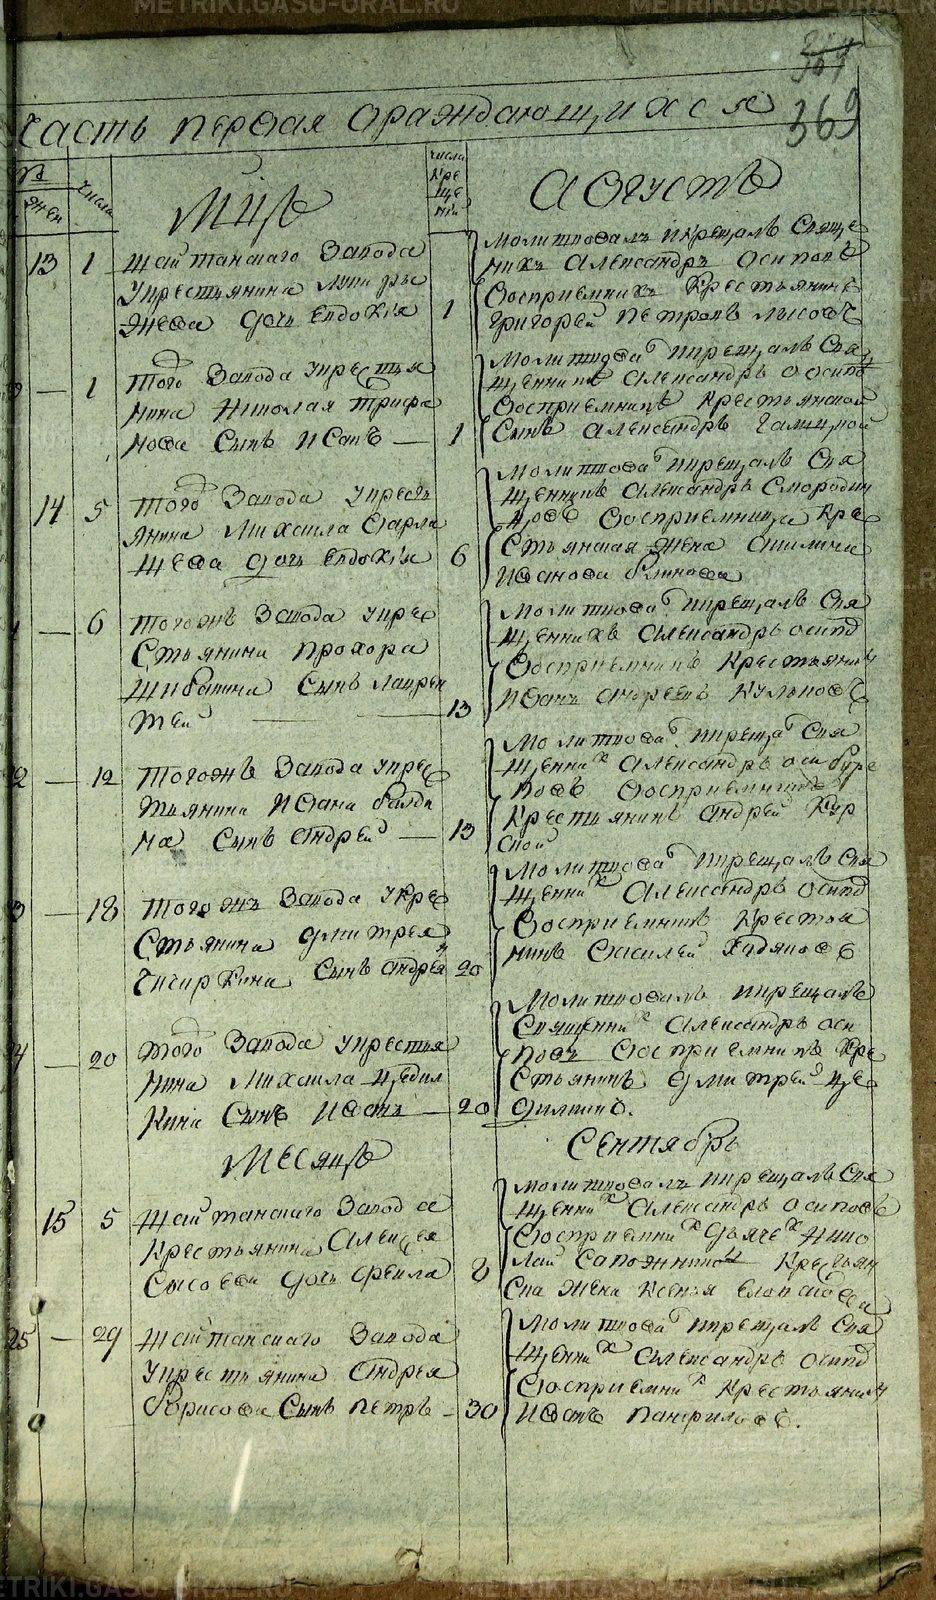 METRIKI.GASO-URAL.RU
METRIKI.GASO-URAL.RU
369
Часть первая ораждающихся
Числа
Числа Крещенiи
Мцъ Августъ
13 1 Шайтанскаго Завода
Укрестьянина
дочь Евдокiя 1
Молитвовалъ икрещалъ Свяще
никъ Александръ Осиповъ
Восприемникъ Крестьянинъ
Григорей Петровъ
1 Того Завода укрестья
нина Николая Трифа
нова Сынъ Исакъ 1
Молитвова икрещалъ Свя
щенникъ Александръ Осипо
Восприемникъ Крестьянской
Сынъ Александръ
14 5 Того Завода укресть
янина Михаила Варла
щева дочь Евдокiя 6
Молитвова икрещалъ Свя
щенникъ Александръ Смородин
цовъ Восприемница Кре
стьянская жена Акилина
Иванова Блинова
6 Тогожъ Завода укре
стьянина Прохора
Шибакина Сынъ Лаврен
тей 13
Молитвова икрещалъ Свя
щенникъ Александръ Осипо
Восприемникъ Крестьянинъ
Иванъ Андреевъ
12 Тогожъ Завода укре
тьянина Ивана Балди
на Сынъ Андрей 13
Молитвова икреща Свя
щенник Александръ
Восприемникъ
Крестьянинъ Андрей Кур
ской
18 Тогожъ Завода Укре
стьянина Дмитрея
Чичиркина Сынъ Андрей 20
Молитвова икрещалъ Свя
щенник Александръ Осипо
Восприемникъ Крестья
нинъ Василей Худяковъ
20 Того Завода укрестья
нина Михаила Цедил
кина Сынъ Иванъ 20
Молитвовалъ икрещалъ
Священник Александръ Оси
повъ Восприемникъ Кре
стьянинъ Дмитрей Це
дилкинъ.
Месяцъ Сентябрь
15 5 Шайтанскаго Завода
Крестьянина Алексея
Сысоева дочь Фекла 8
Молитвовалъ икрещалъ Свя
щенник Александръ Осиповъ
Восприемник Дьячек Нико
лай Сапожников Крестьян
ска жена Ксенья
25 29 Шайтанскаго Завода
Укрестьянина Андрея
Борисова Сынъ Петръ 30
Молитвова икрещалъ Свя
щенник Александръ Осипо
Восприемник Крестьянинъ
Иванъ Панфиловъ.
METRIKI.GASO-URAL.RU
METRIKI.GASO-URAL.RU